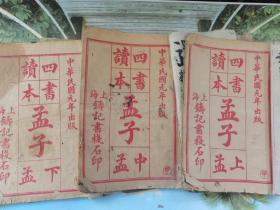 中華民國元年出版
四書
讀本
孟子
上孟
上海鑄記書棧石印
中華民國元年出版
四書
讀本
孟子
中孟
上海鑄記書棧石印
中華民國元年出版
四書
讀本
孟子
下孟
上海鑄記書棧石印